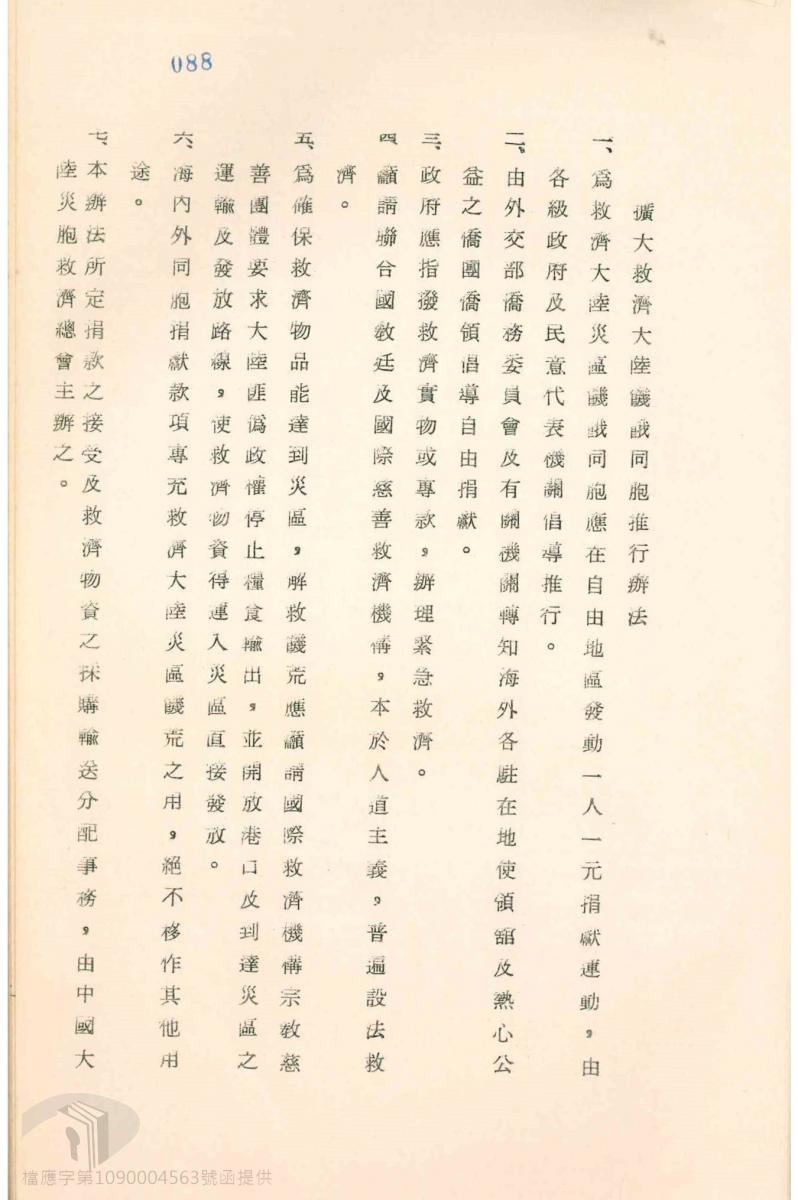 088
擴大救濟大陸饑餓同胞推行辦法
一、為救濟大陸災區饑餓同胞應在自由地區發動一人一元捐獻運動，由
各級政府及民意代表機關倡導推行。
二、由外交部僑務委員會及有關機關轉知海外各駐在地使領舘及熱心公
益之僑團僑領倡導自由捐獻。
三、政府應指撥救濟實物或專款，辦理緊急救濟。
四、籲請聯合國教廷及國際慈善救濟機構，本於人道主義，普遍設法救
濟。
五、為確保救濟物品能達到災區，解救饑荒應籲請國際救濟機構宗教慈
善團體要求大陸匪偽政權停止糧食輸出，並開放港口及到達災區之
運輸及發放路線，使救濟物資得運入災區直接發放。
六、海內外同胞捐獻款項專充救濟大陸災區饑荒之用，絕不移作其他用
途。
七、本辦法所定捐款之接受及救濟物資之採購輸送分配事務，由中國大
陸災胞救濟總會主辦之。
檔應字第1090004563號函提供